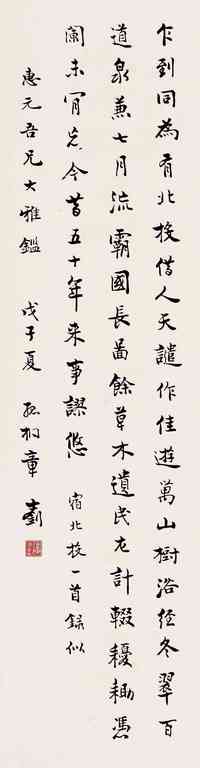 乍到同為有北投借人天譴作佳遊萬山樹浴經冬翠百
道泉兼七月流霸國長啚餘草木遺民左計輟耰耡憑
闌未肎忘今昔五十年來事謬悠 宿北投一首錄似
惠元吾兄大雅鑑 戊子夏 孤桐章士釗